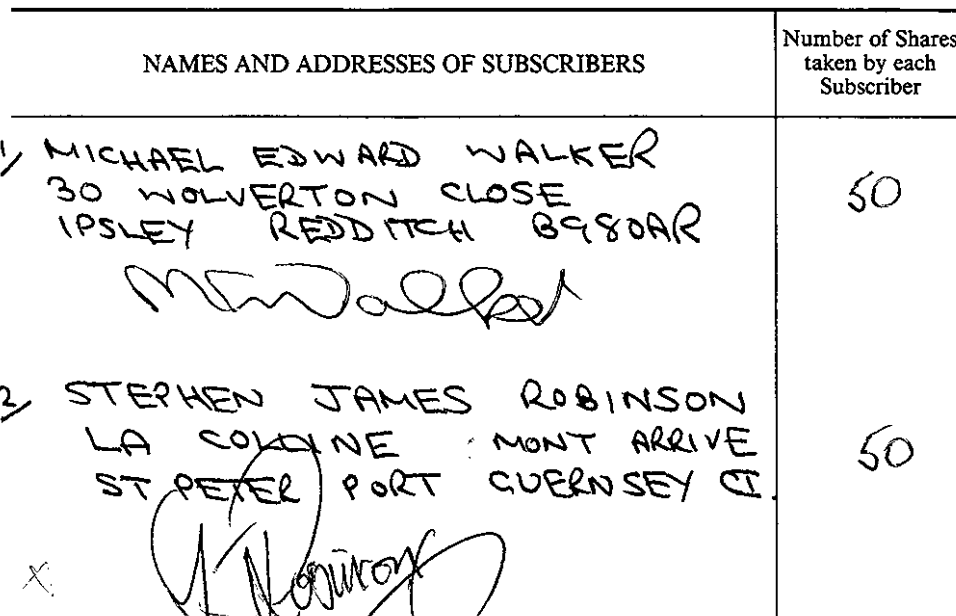 NAMES AND ADDRESSES OF SUBSCRIBERS
Number of Shares
taken by each
Subscriber
1, MICHAEL EDWARD WALKER
30 WOLVERTON CLOSE
IPSLEY REDDITCH B980AR
50
2, STEPHEN JAMES ROBINSON
LA COLLINE MONT ARRIVE
ST PETER PORT GUERNSEY CI.
50
X